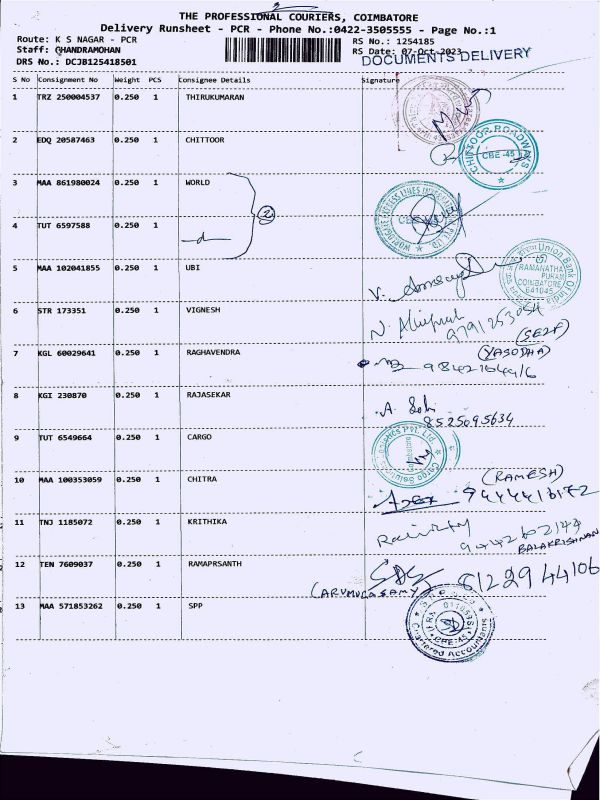 THE PROFESSIONAL COURIERS, COIMBATORE
Delivery Runsheet - PCR - Phone No.:0422-3505555 - Page No.:1
Route: K S NAGAR - PCR
RS No.: 1254185
Staff: CHANDRAMOHAN
RS Date: 07-Oct-2023
DOCUMENTS DELIVERY
DRS No.: DCJB125418501
S No Consignment No Weight PCS Consignee Details Signature
1 TRZ 250004537 0.250 1 THIRUKUMARAN
2 EDQ 20587463 0.250 1 CHITTOOR
CHITTOOR ROADWAYS
CBE-45
3 MAA 861980024 0.250 1 WORLD
2
4 TUT 6597588 0.250 1
5 MAA 102041855 0.250 1 UBI
Union Bank Of India
RAMANATHA
PURAM
COIMBATORE
641045
6 STR 173351 0.250 1 VIGNESH
9791253054
(SELF)
7 KGL 60029641 0.250 1 RAGHAVENDRA
(YASODHA)
8 KGI 230870 0.250 1 RAJASEKAR
8525095634
9 TUT 6549664 0.250 1 CARGO
10 MAA 100353059 0.250 1 CHITRA
(RAMESH)
9444416172
11 TNJ 1185072 0.250 1 KRITHIKA
BALAKRISHNAN
12 TEN 7609037 0.250 1 RAMAPRSANTH
(ARUMUGASAMY)
6122944106
13 MAA 571853262 0.250 1 SPP
CBE-45
Chartered Accountants